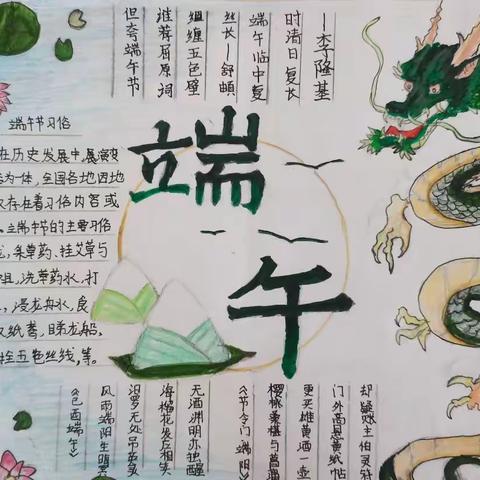 端午
—李隆基
时清日复长
端午临中夏
丝长—舒頔
缠五色臂
谁荐屈原祠
但夸端午节
端午节习俗
在历史发展中,展演变
为一体,全国各地因地
存在着习俗内容或
。端午节的主要习俗
龙,采草药、挂艾草与
祖,洗草药水,打
,浸龙舟水,食
纸鸢、睇龙船、
拴五色丝线,等。
却疑账主伯灵符
门外高悬黄纸帖
更买雄黄酒一壶
樱桃桑椹与菖蒲
《节令门 端阳》
无酒渊明亦独醒
海榴花发应相笑
汨罗无处吊英灵
风雨端阳生晦冥
《已酉端午》